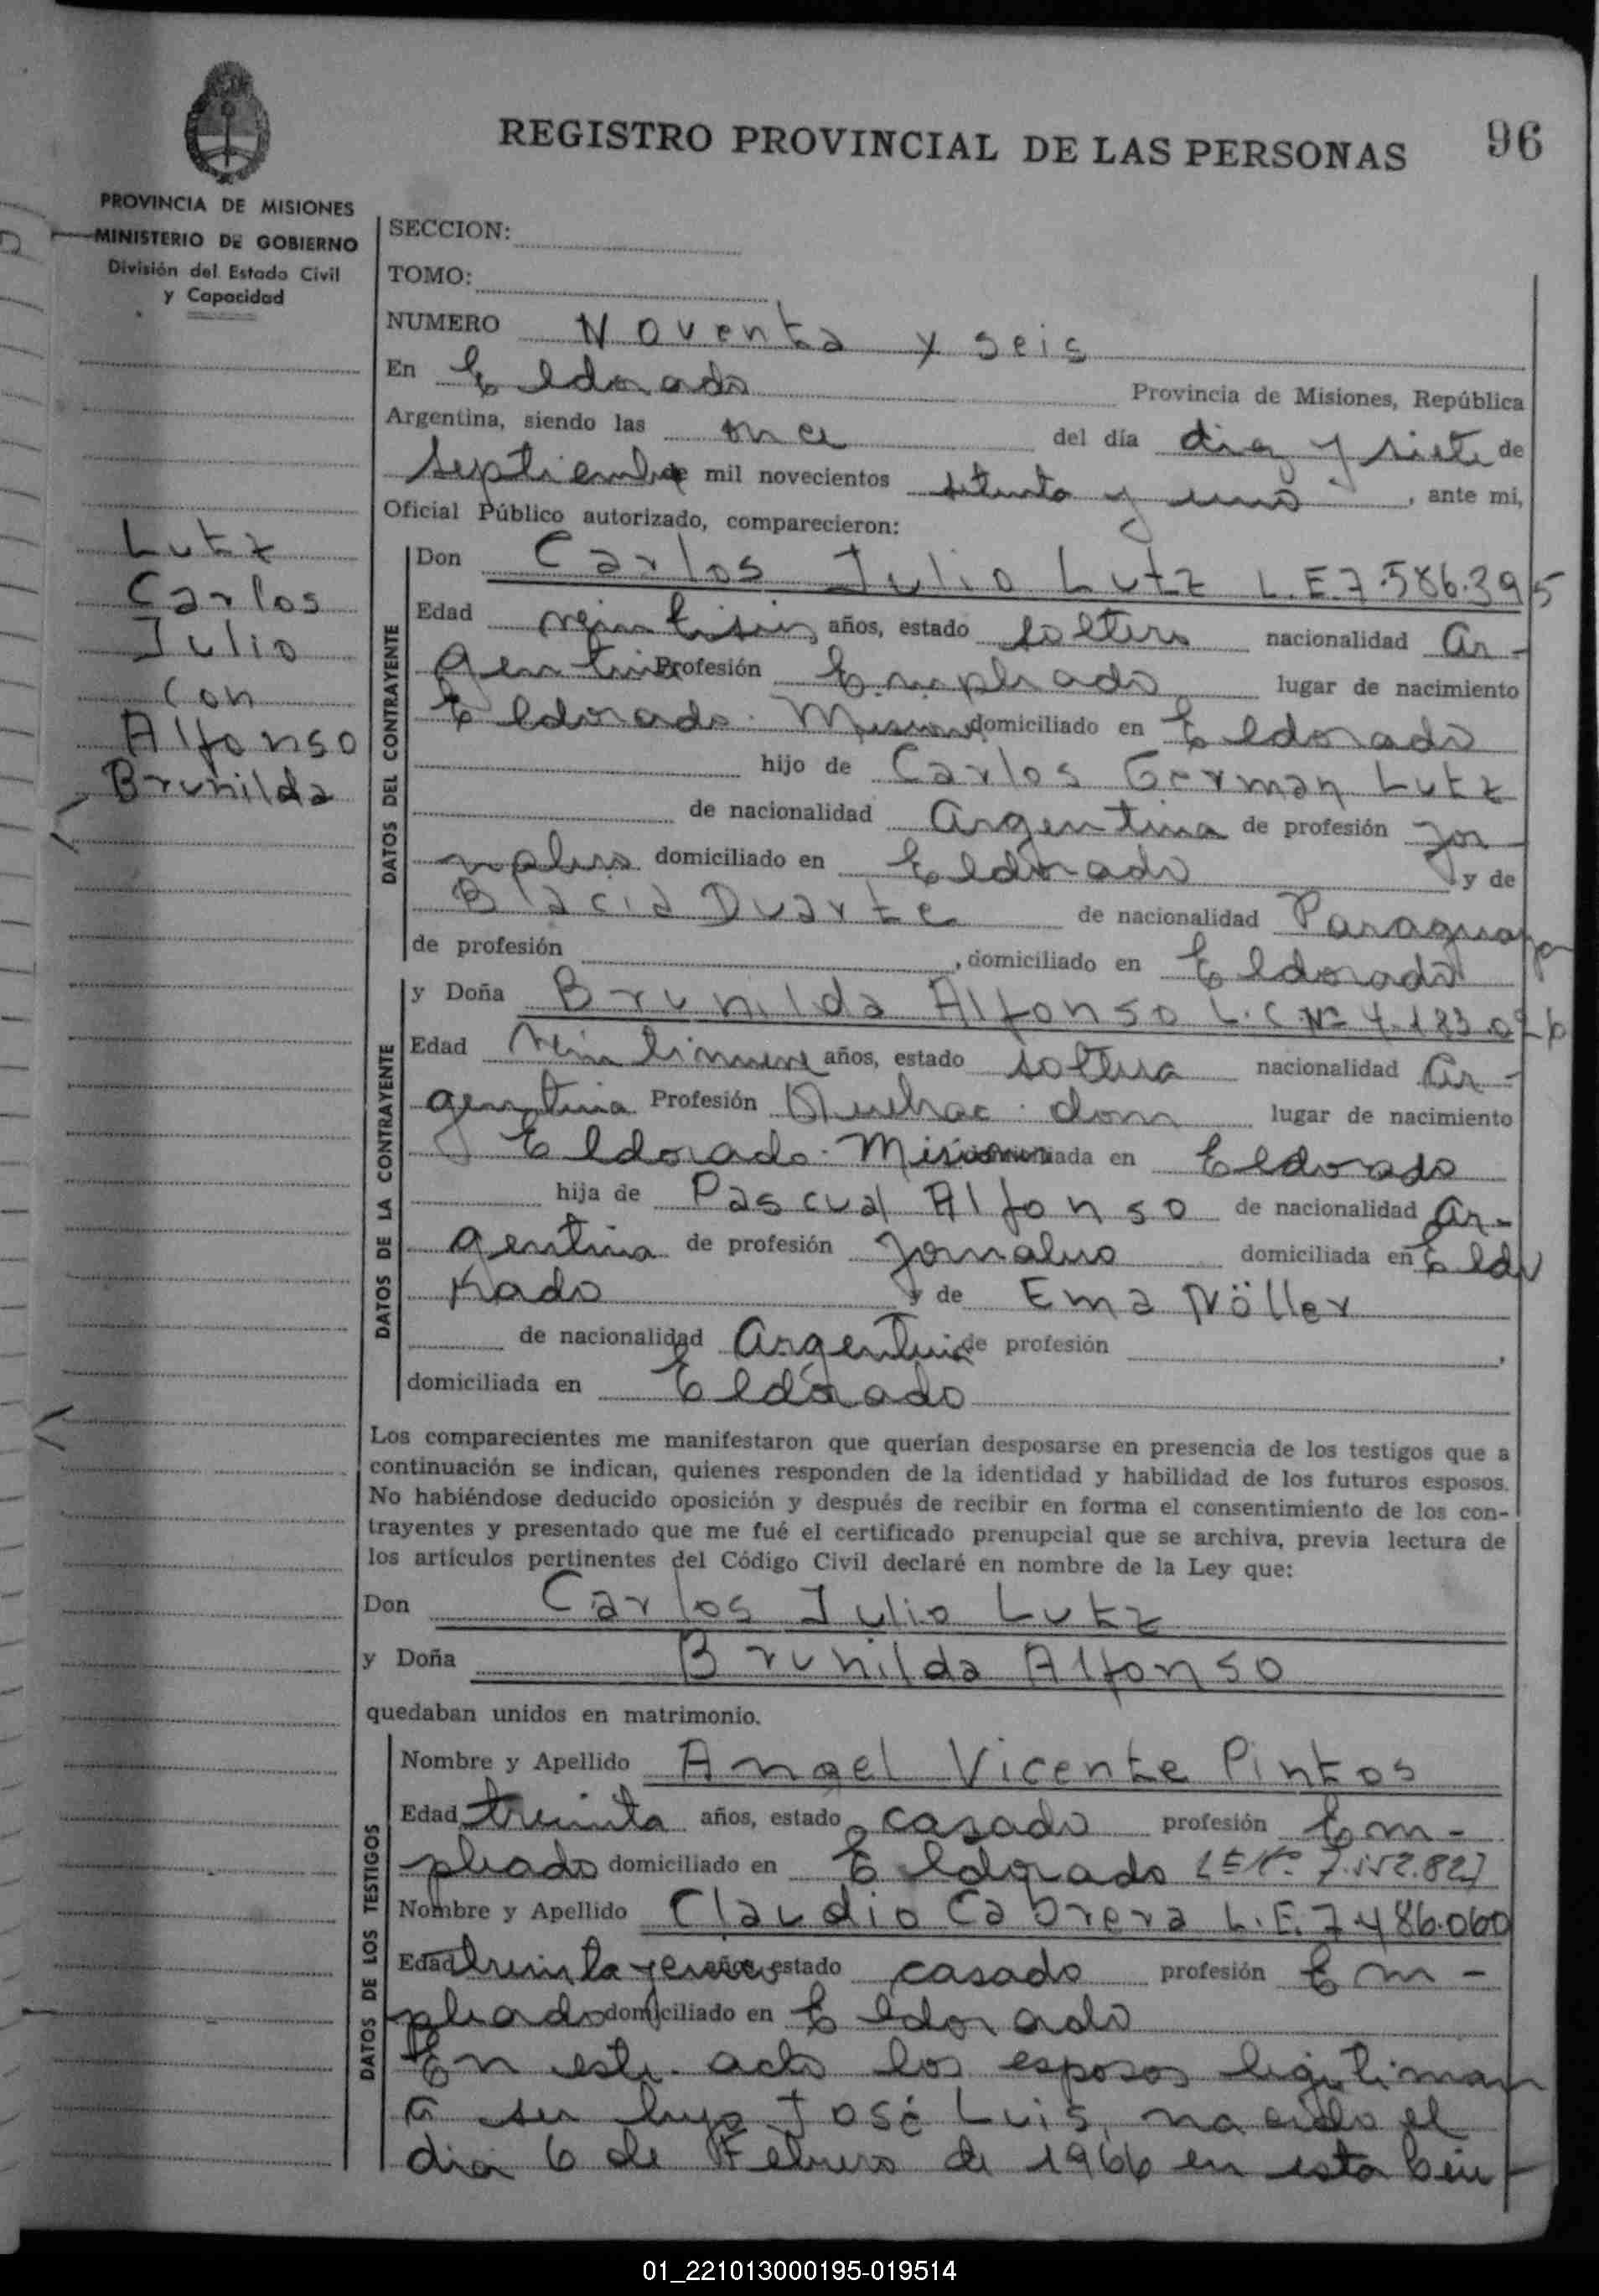 REGISTRO PROVINCIAL DE LAS PERSONAS 96
PROVINCIA DE MISIONES
MINISTERIO DE GOBIERNO
División del Estado Civil
y Capacidad
Lutz
Carlos
Julio
con
Alfonso
Brunilda
SECCION:
TOMO:
NUMERO Noventa y seis
En Eldorado Provincia de Misiones, República
Argentina, siendo las once del día diez y siete de
septiembre mil novecientos setenta y uno, ante mi,
Oficial Público autorizado, comparecieron:
DATOS DEL CONTRAYENTE
Don Carlos Julio Lutz L.E.7.586.395
Edad veintiseis años, estado soltero nacionalidad Ar-
gentina Profesión Empleado lugar de nacimiento
Eldorado. Misiones domiciliado en Eldorado
hijo de Carlos German Lutz
de nacionalidad Argentina de profesión Jor
nalero domiciliado en Eldorado y de
Blacia Duarte de nacionalidad Paraguaya
de profesión , domiciliado en Eldorado
DATOS DE LA CONTRAYENTE
y Doña Brunilda Alfonso L.C Nº 4.183.026
Edad años, estado soltera nacionalidad Ar-
gentina Profesión Quehac. dom lugar de nacimiento
Eldorado. Misiones domiciliada en Eldorado
hija de Pascual Alfonso de nacionalidad Ar-
gentina de profesión Jornalero domiciliada en Eldo
rado y de Ema Nöller
de nacionalidad Argentina de profesión ,
domiciliada en Eldorado
Los comparecientes me manifestaron que querían desposarse en presencia de los testigos que a
continuación se indican, quienes responden de la identidad y habilidad de los futuros esposos.
No habiéndose deducido oposición y después de recibir en forma el consentimiento de los con-
trayentes y presentado que me fué el certificado prenupcial que se archiva, previa lectura de
los artículos pertinentes del Código Civil declaré en nombre de la Ley que:
Don Carlos Julio Lutz
y Doña Brunilda Alfonso
quedaban unidos en matrimonio.
DATOS DE LOS TESTIGOS
Nombre y Apellido Angel Vicente Pintos
Edad treinta años, estado casado profesión Em-
pleado domiciliado en Eldorado LE Nº 7.552.827
Nombre y Apellido Claudio Cabrera L.E.7.486.060
Edad treinta y años, estado casado profesión Em-
pleado domiciliado en Eldorado
En este acto los esposos legitiman
a su hijo José Luis, nacido el
dia 6 de Febrero de 1966 en esta Ciu-
01_221013000195-019514